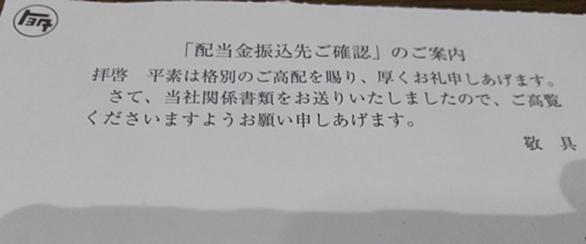 トヨタ
「配当金振込先ご確認」のご案内
拝啓　平素は格別のご高配を賜り、厚くお礼申しあげます。
さて、当社関係書類をお送りいたしましたので、ご高覧
くださいますようお願い申しあげます。
敬　具